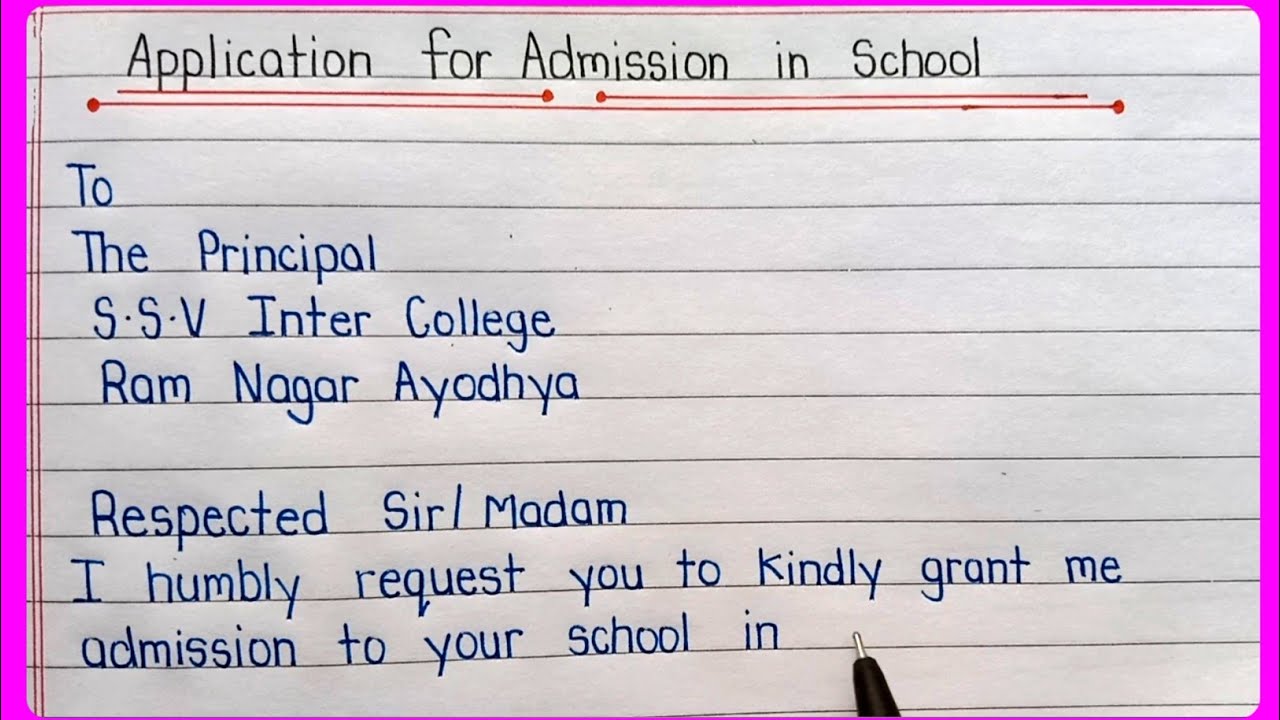 Application for Admission in School
To
The Principal
S.S.V Inter College
Ram Nagar Ayodhya
Respected Sir/Madam
I humbly request you to kindly grant me
admission to your school in